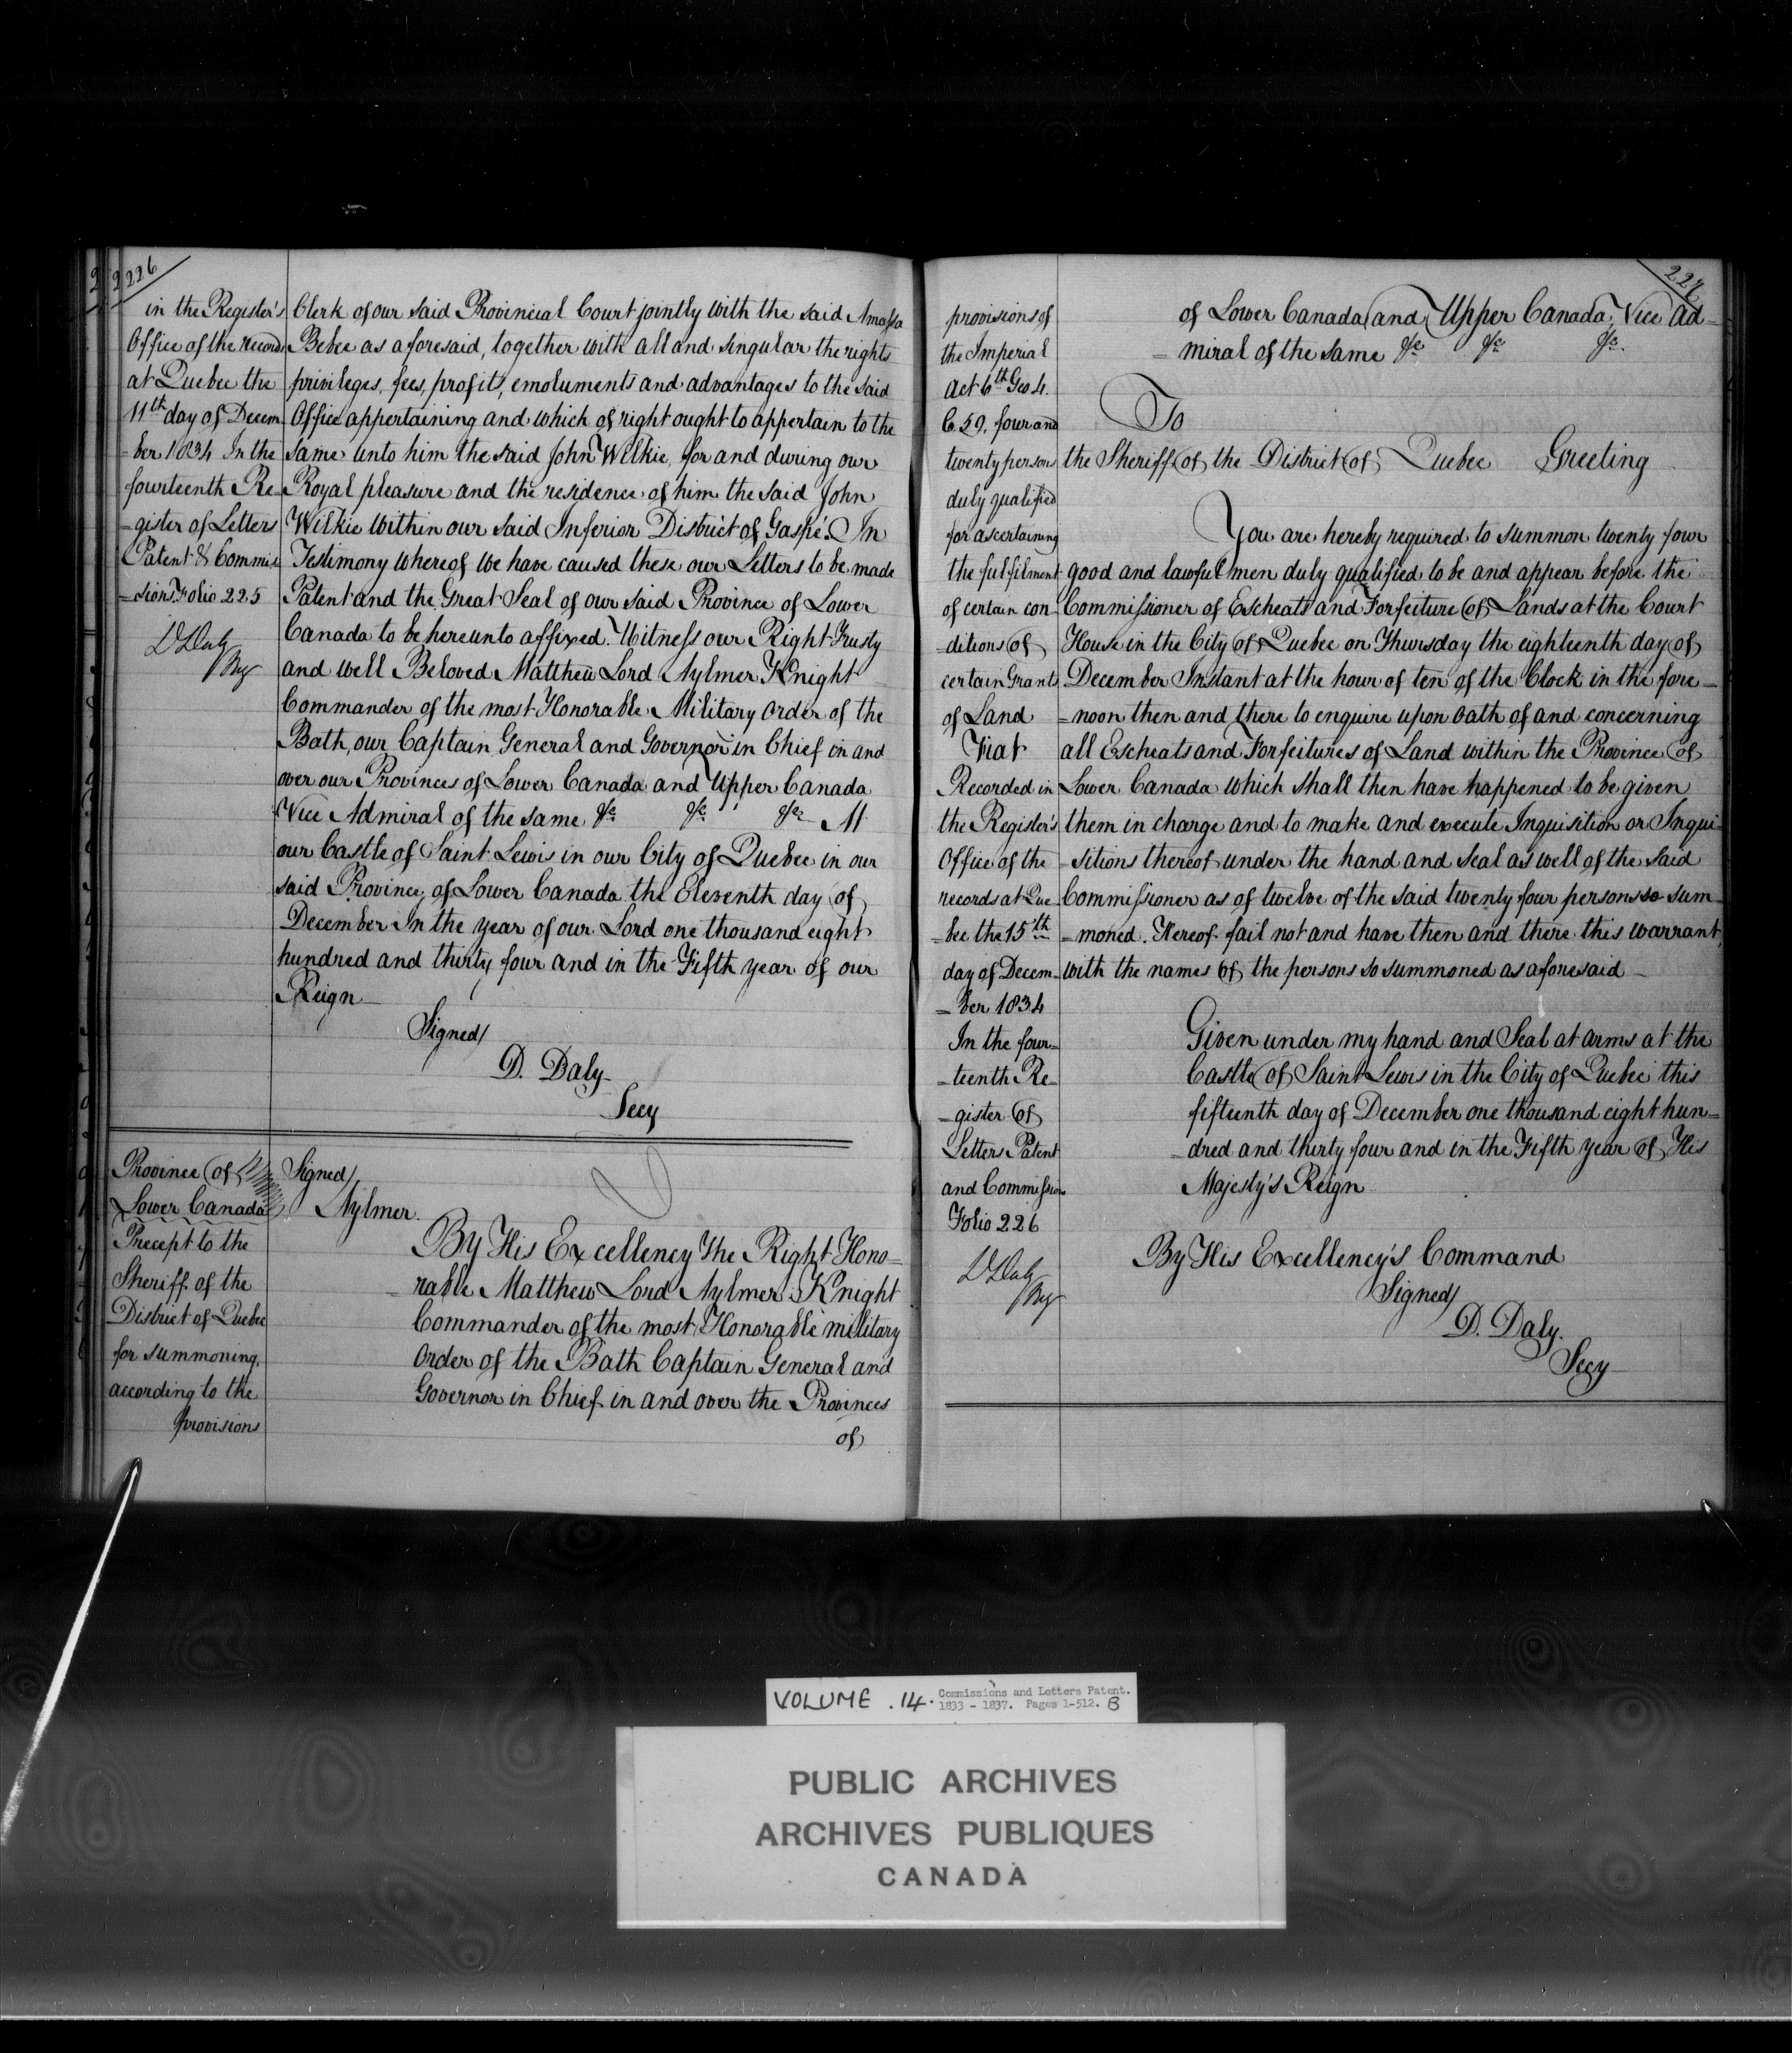 226
in the Register's
Office of the records
at Quebec the
11th day of Decem
=ber 1834 In the
fourteenth Re=
=gister of Letters
Patent & Commis
=sions Folio 225
D Daly
Reg
Clerk of our said Provincial Court jointly with the said Amassa
Bebee as aforesaid, together with all and singular the rights
privileges, fees, profits, emoluments and advantages to the said
Office appertaining and which of right ought to appertain to the
same unto him the said John Wilkie, for and during our
Royal pleasure and the residence of him the said John
Wilkie within our said Inferior District of Gaspé. In
Testimony whereof We have caused these our Letters to be made
Patent and the Great Seal of our said Province of Lower
Canada to be hereunto affixed. Witness our Right Trusty
and well Beloved Matthew Lord Aylmer Knight
Commander of the most Honorable Military Order of the
Bath, our Captain General and Governor in Chief in and
over our Provinces of Lower Canada and Upper Canada
Vice Admiral of the same &c &c &c At
our Castle of Saint Lewis in our City of Quebec in our
said Province of Lower Canada the Eleventh day of
December In the year of our Lord one thousand eight
hundred and thirty four and in the Fifth year of our
Reign
Signed/
D. Daly
Secy
Province of
Lower Canada
Precept to the
Sheriff of the
District of Quebec
for summoning,
according to the
provisions
Signed/
Aylmer.
By His Excellency The Right Hono=
=rable Matthew Lord Aylmer Knight
Commander of the most Honorable military
Order of the Bath Captain General and
Governor in Chief in and over the Provinces
of
227
provisions of
the Imperial
Act 6th Geo 4.
C. 59. four and
twenty persons
duly qualified
for ascertaining
the fulfilment
of certain con
=ditions of
certain Grants
of Land
Fiat
Recorded in
the Register's
Office of the
records at Que
=bec the 15th
day of Decem=
=ber 1834
In the four=
=teenth Re=
=gister of
Letters Patent
and Commissions
Folio 226
D Daly
Reg
of Lower Canada and Upper Canada, Vice Ad=
=miral of the same &c &c &c
To
the Sheriff of the District of Quebec Greeting
You are hereby required to summon twenty four
good and lawful men duly qualified to be and appear before the
Commissioner of Escheats and Forfeiture of Lands at the Court
House in the City of Quebec on Thursday the eighteenth day of
December Instant at the hour of ten of the Clock in the fore=
=noon then and there to enquire upon Oath of and concerning
all Escheats and Forfeitures of Land within the Province of
Lower Canada which shall then have happened to be given
them in charge and to make and execute Inquisition or Inqui=
=sitions thereof under the hand and Seal as well of the said
Commissioner as of twelve of the said twenty four persons so sum
=moned. Hereof fail not and have then and there this warrant,
with the names of the persons so summoned as aforesaid
Given under my hand and Seal at arms at the
Castle of Saint Lewis in the City of Quebec this
fifteenth day of December one thousand eight hun=
=dred and thirty four and in the Fifth year of His
Majesty's Reign
By His Excellency's Command
Signed/
D. Daly.
Secy
VOLUME .14. Commissions and Letters Patent.
1833 - 1837. Pages 1-512. B
PUBLIC ARCHIVES
ARCHIVES PUBLIQUES
CANADA